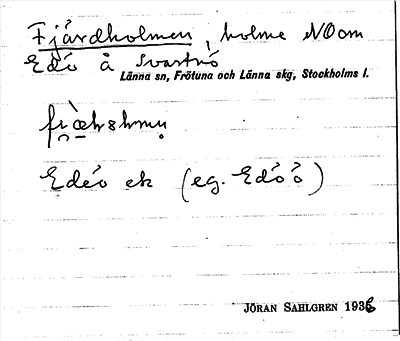 Fjärdholmen, holme NO om
Edö å Svartnö
Länna sn, Frötuna och Länna skg, Stockholms l.
Edö ek (eg. Edöö)
JÖRAN SAHLGREN 1936